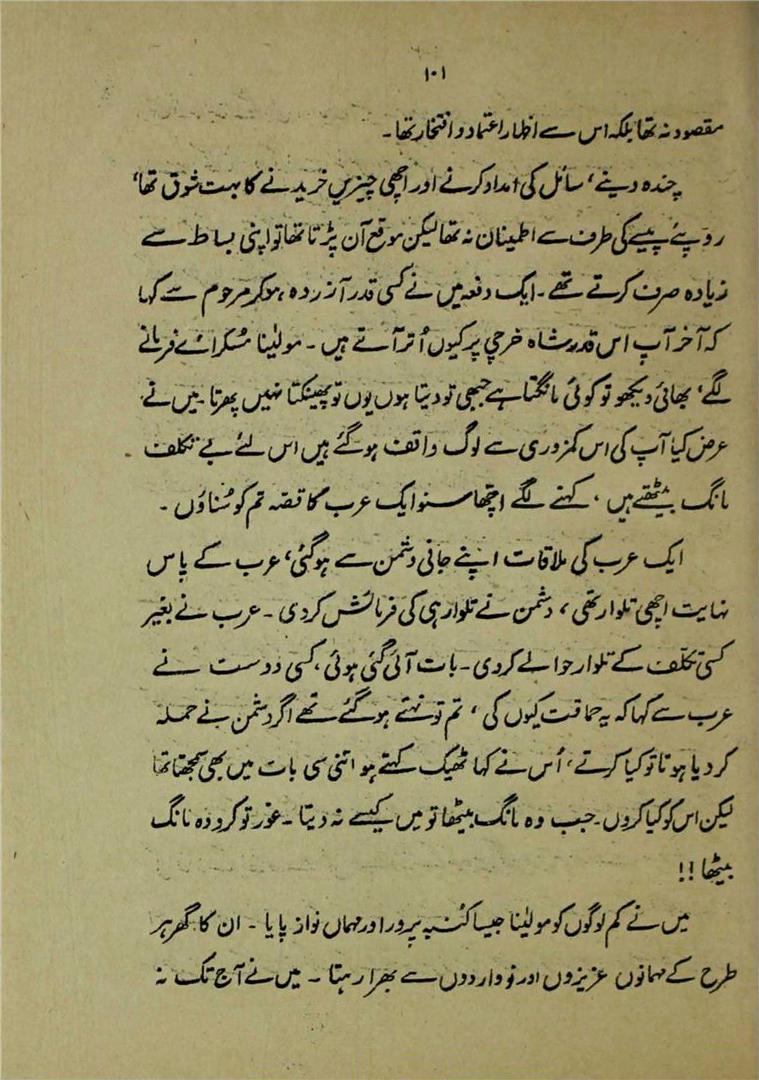 ۱۰۱
مقصود نہ تھا بلکہ اس سے اظہار اعتماد و افتخار تھا۔
چندہ دینے، سائل کی امداد کرنے اور اچھی چیزیں خریدنے کا بہت شوق تھا،
روپئے پیسے کی طرف سے اطمینان نہ تھا لیکن موقع آن پڑتا تھا تو اپنی بساط سے
زیادہ صرف کرتے تھے۔ ایک دفعہ میں نے کسی قدر آزردہ ہو کر مرحوم سے کہا
کہ آخر آپ اس قدر شاہ خرچی پر کیوں اُتر آتے ہیں۔ مولینا مُسکرائے فرمانے
لگے، بھائی دیکھو تو کوئی مانگتا ہے جبھی تو دیتا ہوں یوں تو پھینکتا نہیں پھرتا۔ میں نے
عرض کیا آپ کی اس کمزوری سے لوگ واقف ہو گئے ہیں اس لئے بے تکلف
مانگ بیٹھتے ہیں، کہنے لگے اچھا سنو ایک عرب کا قصہ تم کو سُناؤں۔
ایک عرب کی ملاقات اپنے جانی دشمن سے ہو گئی، عرب کے پاس
نہایت اچھی تلوار تھی، دشمن نے تلوار ہی کی فرمائش کر دی۔ عرب نے بغیر
کسی تکلّف کے تلوار حوالے کر دی۔ بات آئی گئی ہوئی، کسی دوست نے
عرب سے کہا کہ یہ حماقت کیوں کی، تم تو نہتے ہو گئے تھے اگر دشمن نے حملہ
کر دیا ہوتا تو کیا کرتے، اُس نے کہا ٹھیک کہتے ہو اتنی سی بات میں بھی سمجھتا تھا
لیکن اس کو کیا کروں۔ جب وہ مانگ بیٹھا تو میں کیسے نہ دیتا۔ غور تو کرو وہ مانگ
بیٹھا!!
میں نے کم لوگوں کو مولینا جیسا کُنبہ پرور اور مہماں نواز پایا۔ ان کا گھر ہر
طرح کے مہمانوں عزیزوں اور نوواردوں سے بھرا رہتا۔ میں نے آج تک نہ